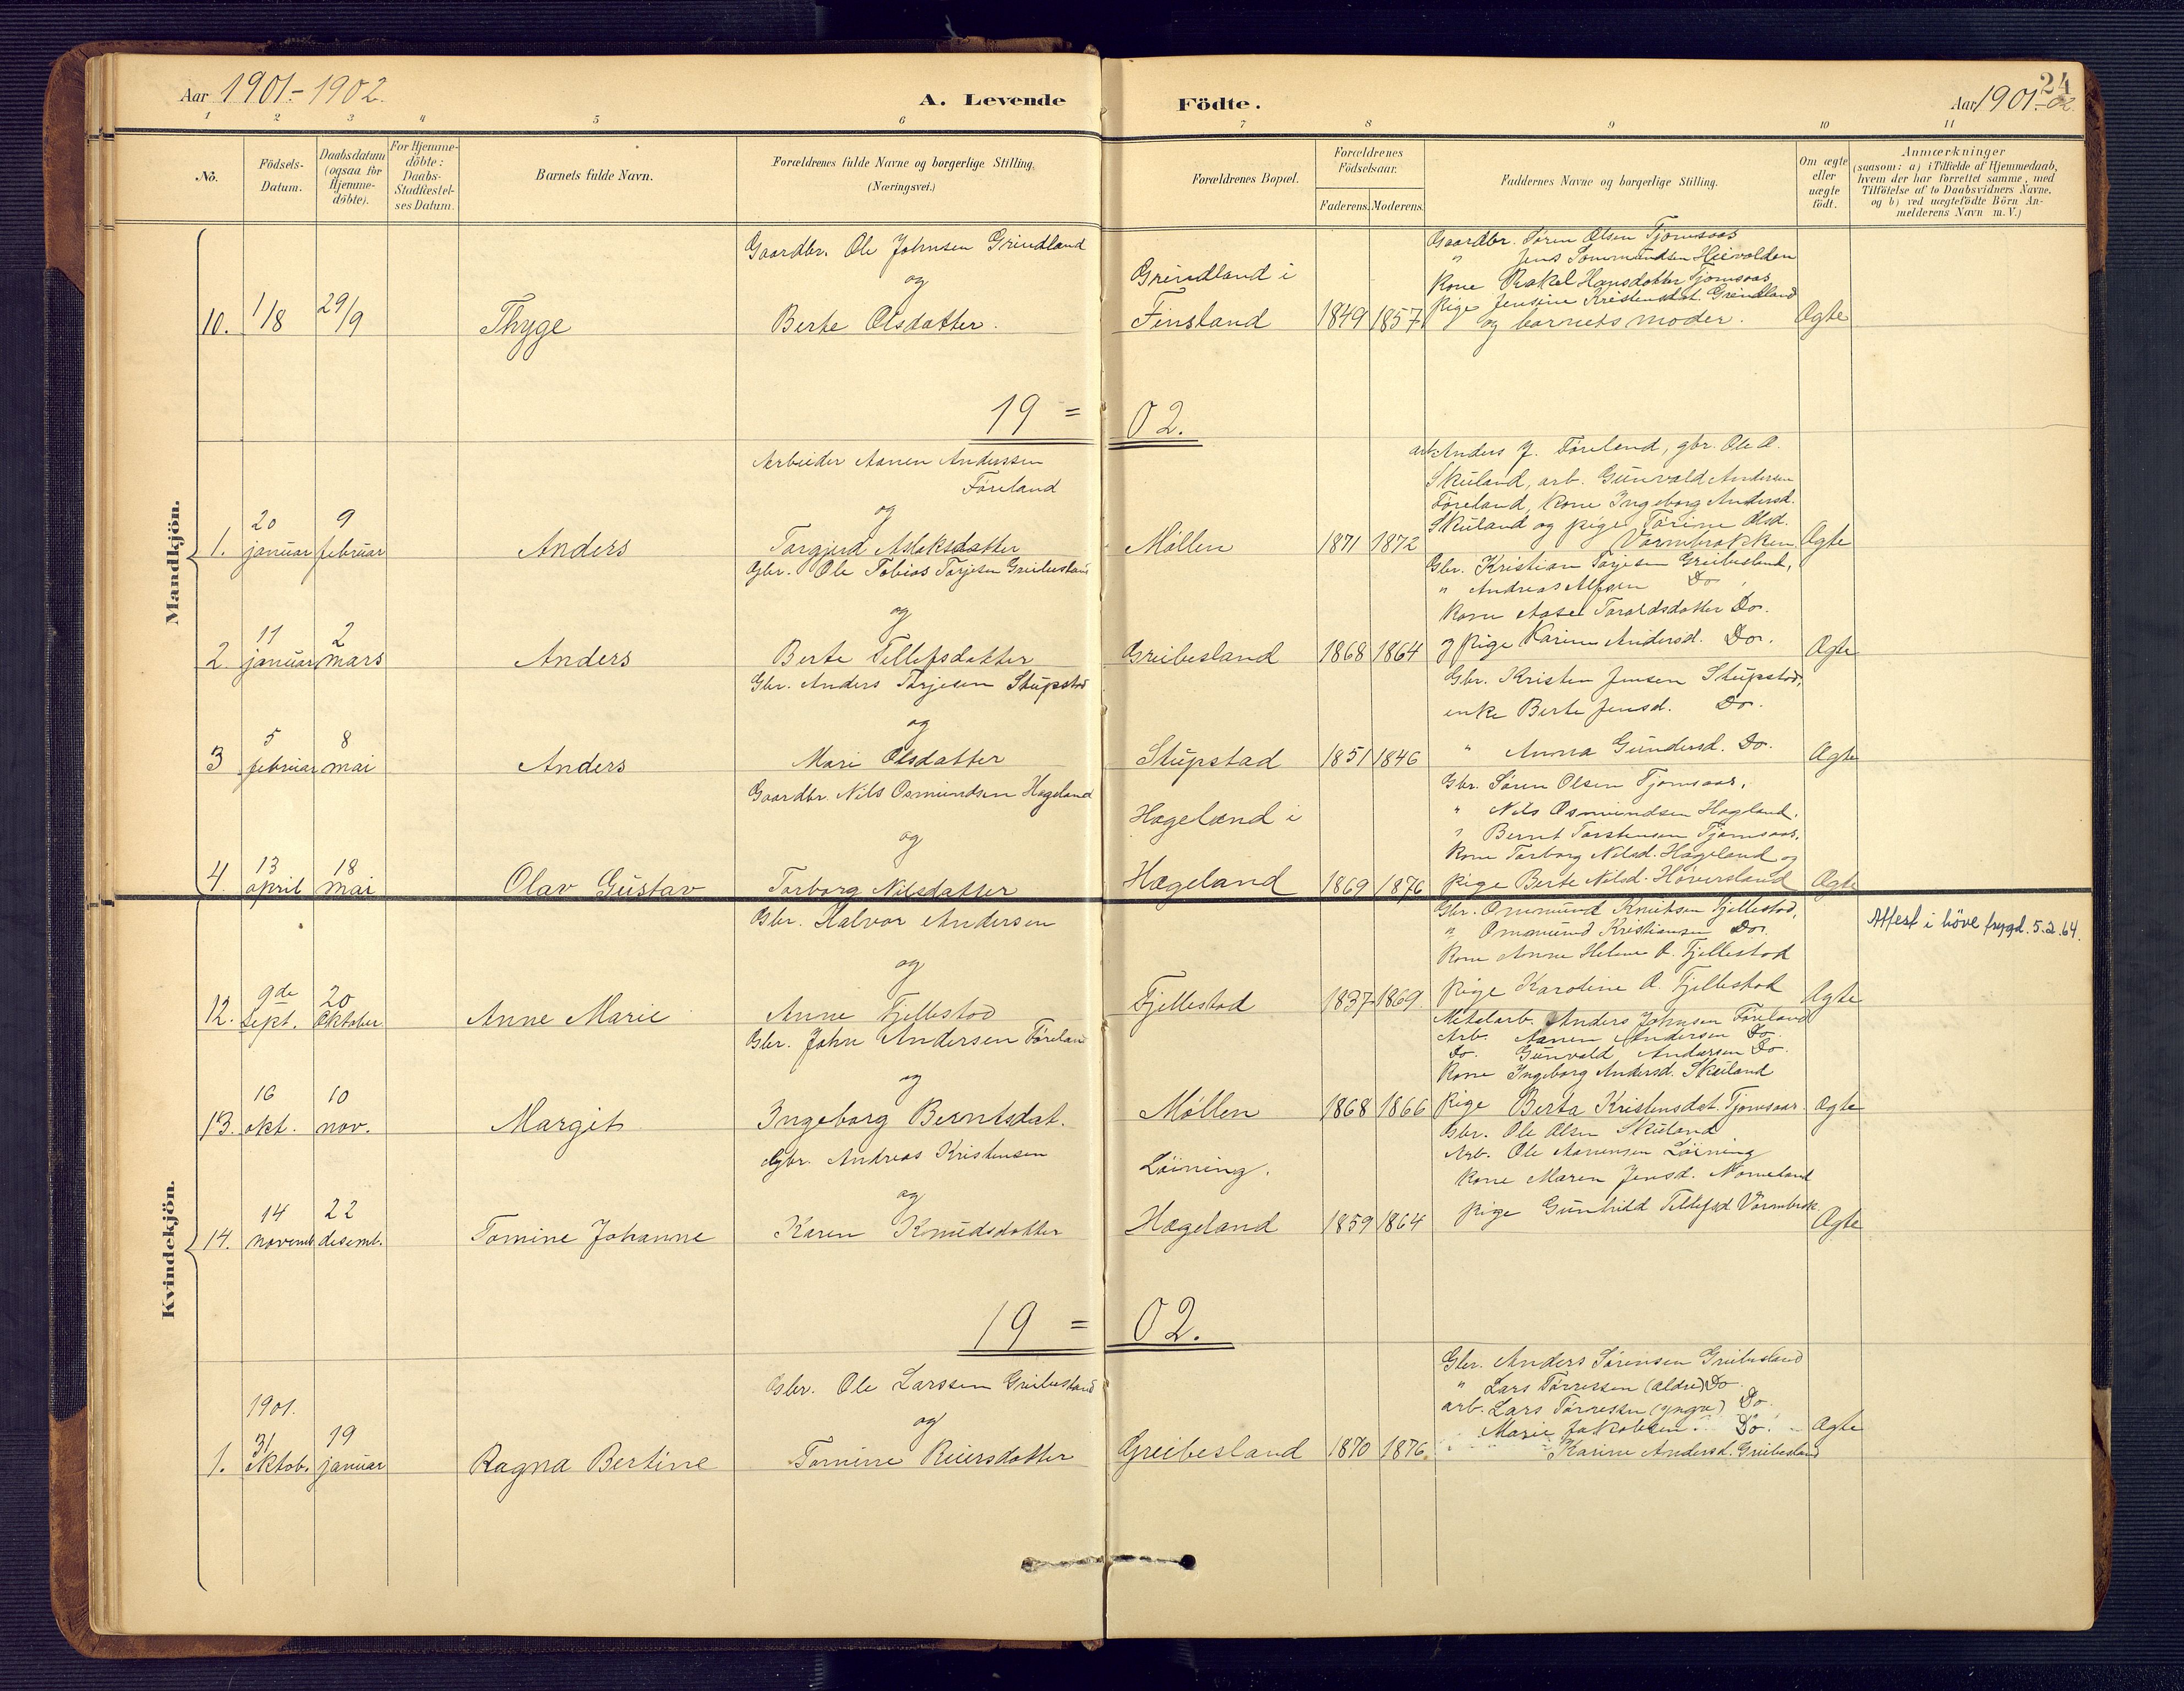 Aar 1901.-1902.
A. Levende
Födte.
24
Aar 1901.-02.
1 2 3 4 5 6 7 8 9 10 11
No.
Födsels-
Datum.
Daabsdatum
(ogsaa for
Hjemme-
döbte).
For Hjemme-
döbte:
Daabs-
Stadfæstel-
ses Datum.
Barnets fulde Navn.
Forældrenes fulde Navne og borgerlige Stilling.
(Næringsvei.)
Forældrenes Bopæl.
Forældrenes
Födselsaar.
Faderens. Moderens.
Faddernes Navne og borgerlige Stilling.
Om ægte
eller
uægte
födt.
Anmærkninger
(saasom: a) i Tilfælde af Hjemmedaab,
hvem der har forrettet samme, med
Tilföielse af to Daabsvidners Navne,
og b) ved uægtefödte Börn An-
melderens Navn m. V.)
Mandkjön.
10. 1/8 29/9 Thyge
Gaardbr. Ole Johnsen Grindland
og
Berte Olsdatter.
Grindland i
Finsland
1849 1857
Gaardbr. Sören Olsen Tjomsaas
" Jens Tommundsen Heivolden
Kone Rakel Hansdatter Tjomsaas
Pige Jensine Kristensdat. Grindland
og barnets moder.
Ægte
19 = 02.
1. 20 januar 9 februar Anders
Arbeider Aanen Anderssen
Föreland
og
Targjerd Aslaksdatter
Möllen
1871 1872
arb. Anders J. Föreland, gbr. Ole A.
Skuland, arb. Gunvald Andersen
Föreland, kone Ingeborg Andersd.
Skuland og pige Torine Olsd.
Varmbrokken
Ægte
2. 11 januar 2 mars Anders
Gbr. Ole Tobias Torjesen Greibesland
og
Berte Tellefsdatter
Greibesland
1868 1864
Gbr. Kristian Torjesen Greibesland,
" Andreas Alfsen Do
Kone Aasel Taraldsdatter Do.
Pige Karine Andersd. Do.
Ægte
3 5 februar 8 mai Anders
Gbr. Anders Torjesen Stupstad
og
Mari Olsdatter
Stupstad
1851 1846
Gbr. Kristen Jensen Stupstad,
enke Berte Jensd. Do.
" Anna Gundersd. Do.
Ægte
4. 13 april 18 mai Olav Gustav
Gaardbr. Nils Osmundsen Hægeland
og
Torborg Nilsdatter
Hægeland i
Hægeland
1869 1876
Gbr. Sören Olsen Tjomsaas,
" Nils Osmundsen Hægland.
" Bernt Torstensen Tjomsaas,
Kone Torborg Nilsd. Hægeland og
Pige Berte Nilsd. Höversland
Ægte
Kvindekjön.
12. 9de Sept. 20 Oktober Anne Marie
Gbr. Halvor Andersen
og
Anne Fjellestad
Fjellestad
1837 1869.
Gbr. Ommund Knutsen Fjellestad,
" Ommund Kristiansen Do.
Kone Anne Helene O. Fjellestad
Pige Karoline A. Fjellestad
Ægte
Attest i höve trygd. 5.2.64.
13. 16 okt. 10 nov. Margit
Gbr. John Andersen Föreland
og
Ingeborg Berntsdat.
Möllen
1868 1866
Anders Johnsen Föreland
Arb. Aanen Andersen Do
Do. Gunvald Andersen Do.
Kone Ingeborg Andersd. Skuland
Pige Berta Kristensdat. Tjomsaas
Ægte
14. 14 novemb. 22 desemb. Tomine Johanne
Gbr. Andreas Kristensen
og
Karen Knudsdatter
Löining.
Hægeland
1859 1864
Gbr. Ole Olsen Skuland
Arb. Ole Aanensen Löining
Kone Maren Jensd. Nomeland
Pige Gunhild Tellefsd Varmbrok.
Ægte
19 = 02.
1. 1901. 31 oktob. 19 januar Ragna Bertine
Gbr. Ole Larssen Greibesland
og
Tomine Reiersdatter
Greibesland
1870 1876.
Gbr. Anders Sörensen Greibesland
" Lars Törressen (ældre) Do.
arb. Lars Törressen (yngre) Do.
Marie Jakobsen Do.
Karine Andersd. Greibesland
Ægte